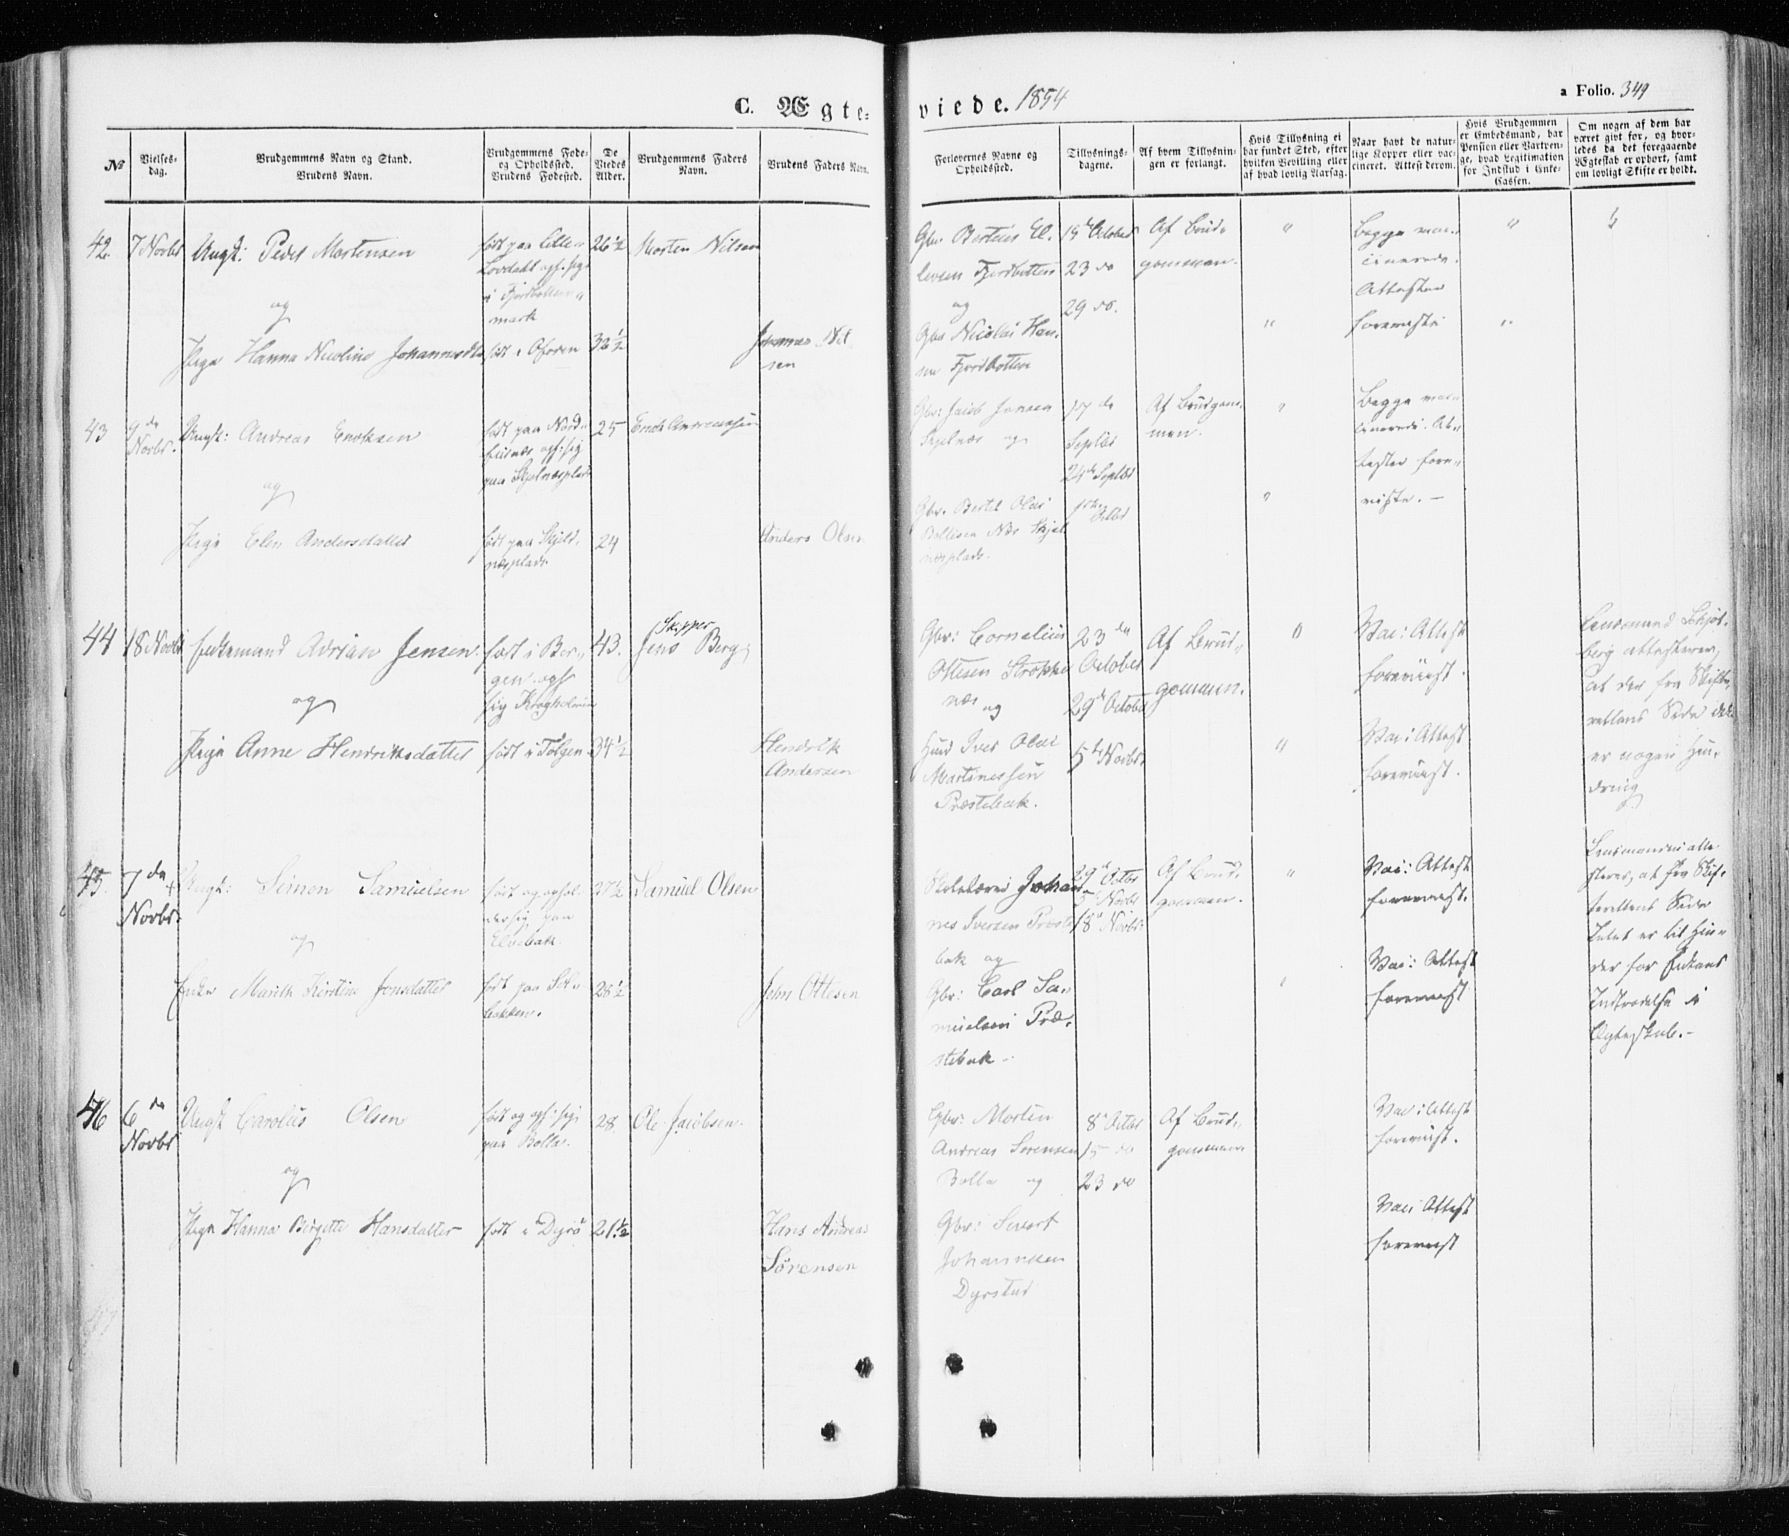 C. Ægte-
viede. 1854
a Folio. 349
No
Vielses-
dag.
Brudgommens Navn og Stand.
Brudens Navn.
Brudgommens Føde-
og Opholdssted.
Brudens Fødested.
De
Viedes
Alder.
Brudgommens Faders
Navn.
Brudens Faders Navn.
Forlovernes Navne og
Opholdssted.
Tillysnings-
dagene.
Af hvem Tillysnin-
gen er forlangt.
Hvis Tillysning ei
har fundet Sted, efter
hvilken Bevilling eller
af hvad lovlig Aarsag.
Naar havt de natur-
lige Kopper eller vac-
cineret. Attest derom.
Hvis Brudgommen
er Embedsmand, har
Pension eller Vartpen-
ge, hvad Legitimation
for Indskud i Enke-
Cassen.
Om nogen af dem har
været gift før, og hvor-
ledes da det foregaaende
Ægteskab er ophørt, samt
om lovligt Skifte er holdt.
42. 7 Novbr
Ungk: Peder Mortensen
og
Pige Hanna Nicoline Johannesdtr
født paa Lille-
i Fjordbotten-
mark
født i Ofoten
26½
32½
Morten Nilsen
Johannes Nil
sen
Gbr. Berteus El.
levsen Fjordbotten
og
Gbr Nicolai Han-
sen Fjordbotten
19de October
23 do
29 do.
Af Brud-
gommen.
"
"
Begge vac-
cinerede.
Attester
foreviste
"
"
43 9de
Novbr.
Ungk: Andreas Enoksen
og
Pige Elen Andersdatter
født paa Nord-
opf: sig
paa Skjelnæsplads
født paa Skjeld-
næsplads
25
24
Enok Andreassen
Anders Olsen
Gbr: Jacob Jensen
og
Gbr. Bertel Olai
næsplads.
17 de
Septbr
24de Septbr
1ste Octbr
Af Brudgom-
men.
"
"
Begge vac-
cinerede. At-
tester fore-
viste. —
44 18 Novbr
Enkemand Adrian Jensen
og
Pige Anne Henriksdatter
født i Ber-
gen. opf
sig Krogholmen
født i Tolgen
43.
34½
Skipper
Jens Berg
Hendrik
Andersen
Gbr: Cornelius
Ottesen Strokke
næs og
Huusd Iver Olai
Martinessen
Præstebak.
23 de
October
29de October
5te Novbr.
Af Brud-
gommen.
"
"
Vac: Attest
foreviist.
Vac: Attest
foreviist.
Lensmand Schjøt-
berg attesterer,
at der fra Skifte-
rettens Side ikke
er nogen Hin-
dring
45. 7 de
Novbr.
Ungk: Simon Samuelsen
og
Enke Marith Kirstine Jonsdatter
født og ophol-
der sig paa
Elvebak
født paa Sel-
bakken.
37½
28½
Samuel Olsen
John Ottesen
Skolelærer Johan
nes Iversen Præste
bak og
Gbr: Carl Sa-
muelsen Præ-
stebak —
29de Octbr
5te Novbr
18de Novbr
Af Brud-
gommen.
"
"
Vac: Attest
foreviist.
Vac: Attest
foreviist
Lensmanden atte-
sterer, at fra Skif-
terettens Side
Intet er til Hin-
der for Enkens
Indtrædelse i
Ægteskab. —
46 6 de
Novbr
Ungk Carolus Olsen
og
Pige Hanna Birgitte Hansdatter
født og opf: sig
paa Bolla.
født i Dyrø
28
21½
Ole Jacobsen
Hans Andreas
Sørensen
Gbr: Morten
Andreas Sørensen
Bolla og
Gbr: Sivert
Johannesen
Dyrstad
8de Octbr
15 do
23 do
Af Brud-
gommen
Vac: Attest
foreviist.
Vac: Attest
foreviist